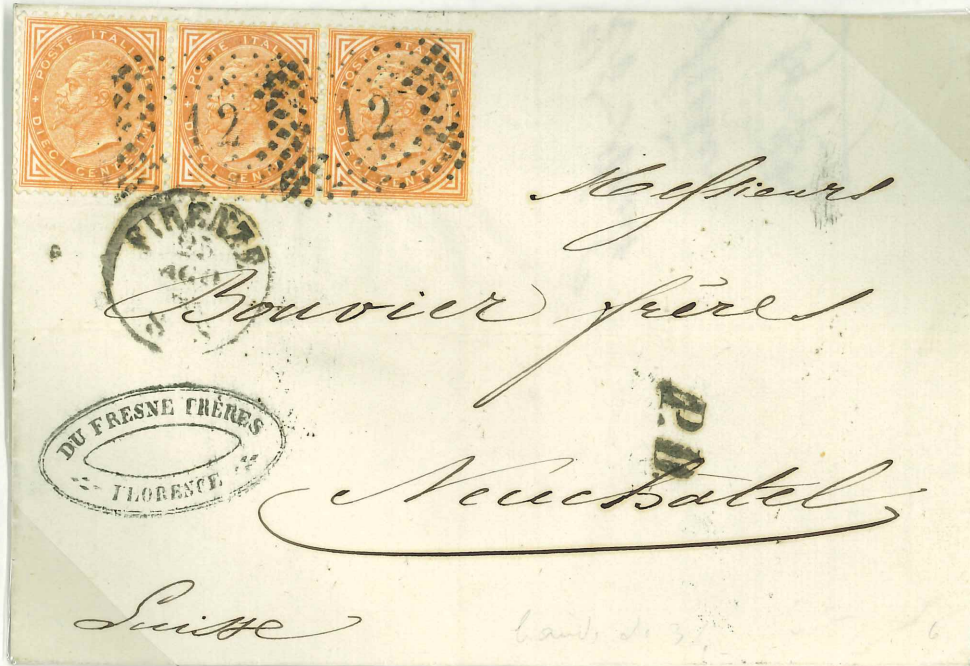 POSTE ITALIANE
DIECI CENTESIMI
POSTE ITALIANE
DIECI CENTESIMI
POSTE ITALIANE
DIECI CENTESIMI
12
12
FIRENZE
25
AGO
Messieurs
Bouvier frères
P.D.
DU FRESNE FRÈRES
FLORENCE
Neuchatel
Suisse